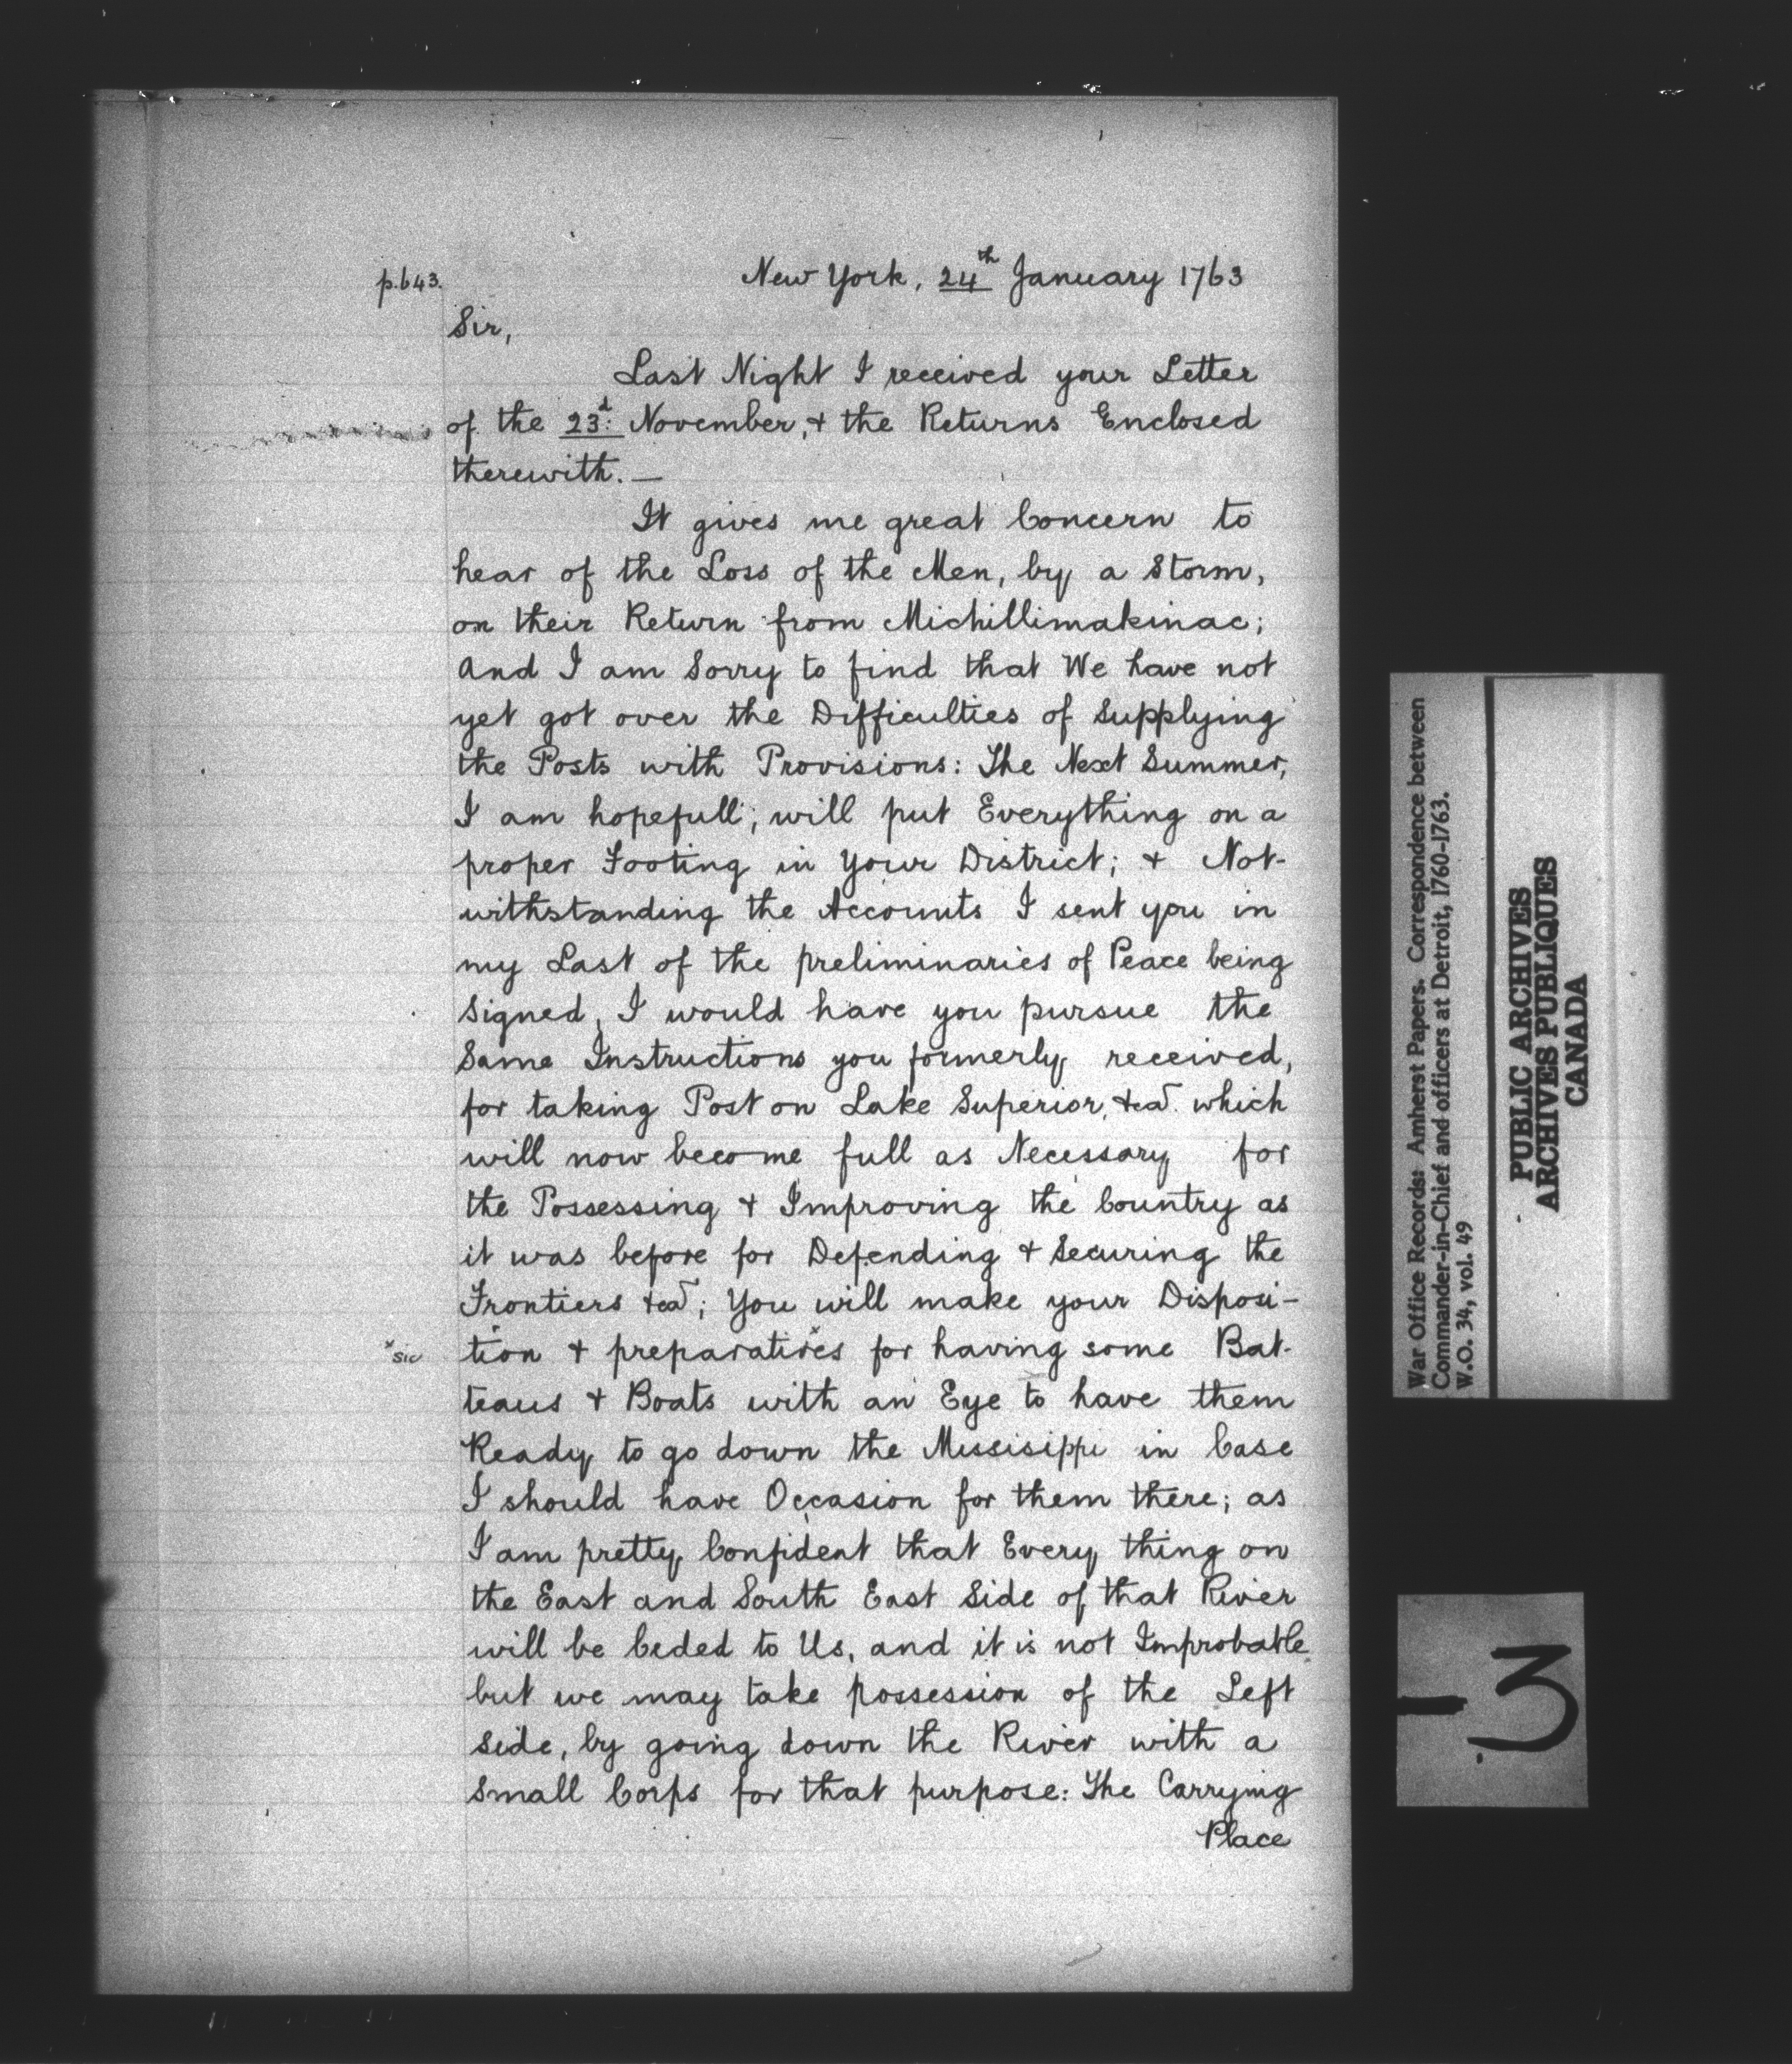 p.643.
New York, 24th January 1763
Sir,
Last Night I received your Letter
of the 23d: November, & the Returns Enclosed
therewith. —
It gives me great Concern to
hear of the Loss of the Men, by a Storm,
on their Return from Michillimakinac;
And I am Sorry to find that We have not
yet got over the Difficulties of Supplying
the Posts with Provisions: The Next Summer,
I am hopefull, will put Everything on a
proper Footing in Your District; & Not-
withstanding the Accounts I sent you in
my Last of the preliminaries of Peace being
Signed, I would have you pursue the
Same Instructions you formerly received,
for taking Post on Lake Superior, &ca. which
will now become full as Necessary for
the Possessing & Improving the Country as
it was before for Defending & Securing the
Frontiers &ca; You will make your Disposi-
x sic
tion & preparatives x for having some Bat-
teaus & Boats with an Eye to have them
Ready to go down the Missisippi in Case
I should have Occasion for them there; as
I am pretty Confident that Every thing on
the East and South East Side of that River
will be Ceded to Us, and it is not Improbable
but we may take possession of the Left
Side, by going down the River with a
Small Corps for that purpose: The Carrying
Place
War Office Records: Amherst Papers. Correspondence between
Commander-in-Chief and officers at Detroit, 1760-1763.
W.O. 34, vol. 49
PUBLIC ARCHIVES
ARCHIVES PUBLIQUES
CANADA
-3